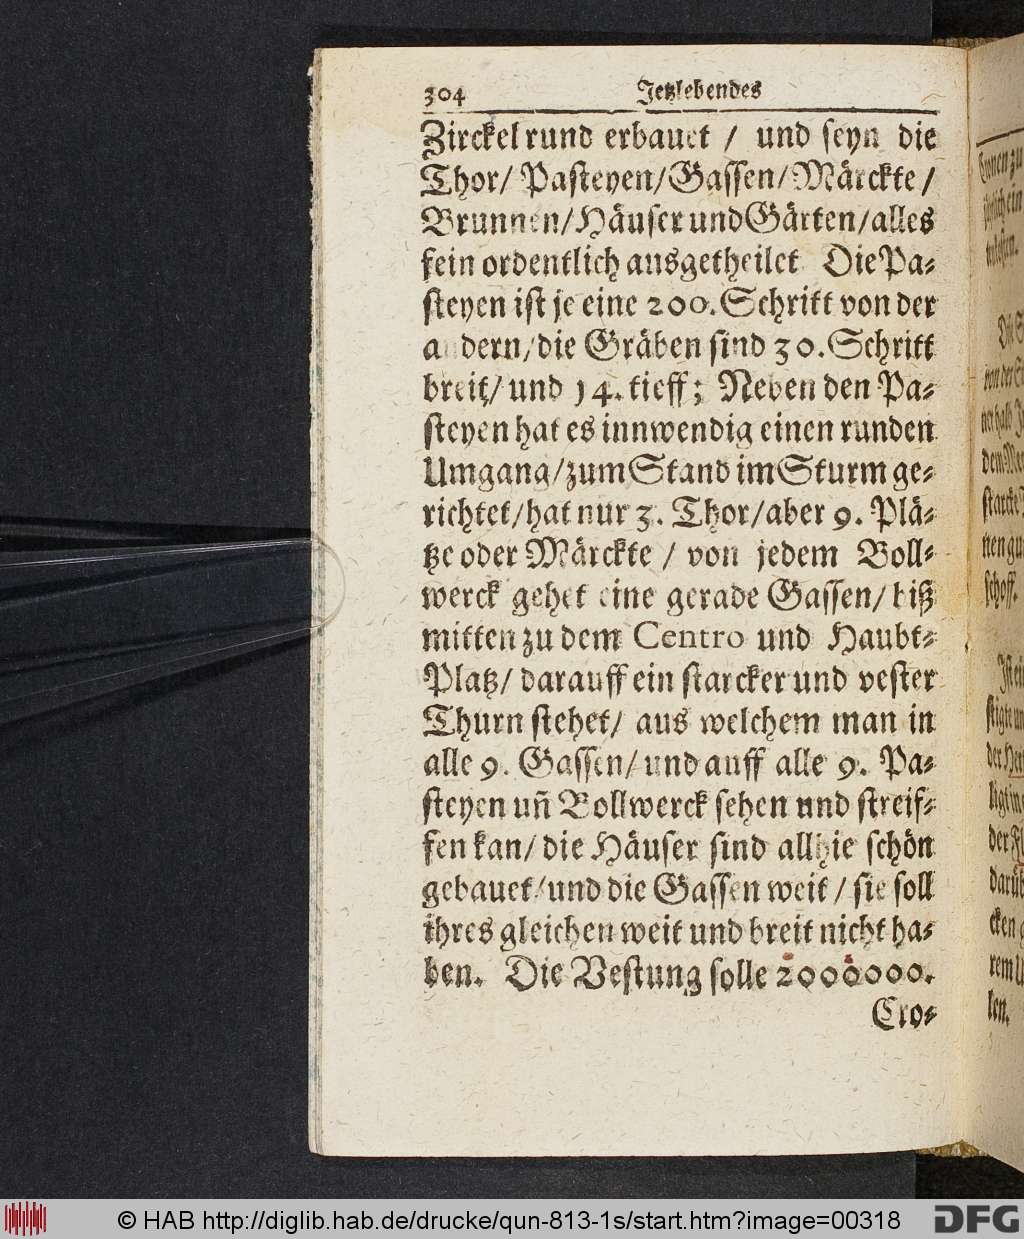 304 Jetzlebendes
Zirckel rund erbauet / und seyn die
Thor / Pasteyen / Gassen / Märckte /
Brunnen / Häuser und Gärten / alles
fein ordentlich ausgetheilet Die Pa-
steyen ist je eine 200. Schritt von der
andern / die Gräben sind 30. Schritt
breit / und 14. tieff; Neben den Pa-
steyen hat es innwendig einen runden
Umgang / zum Stand im Sturm ge-
richtet / hat nur 3. Thor / aber 9. Plä-
tze oder Märckte / von jedem Boll-
werck gehet eine gerade Gassen / biß
mitten zu dem Centro und Haubt-
Platz / darauff ein starcker und vester
Thurn stehet / aus welchem man in
alle 9. Gassen / und auff alle 9. Pa-
steyen uñ Bollwerck sehen und streif-
fen kan / die Häuser sind allhie schön
gebauet / und die Gassen weit / sie soll
ihres gleichen weit und breit nicht ha-
ben. Die Vestung solle 2000000.
Cro-
© HAB http://diglib.hab.de/drucke/qun-813-1s/start.htm?image=00318
DFG